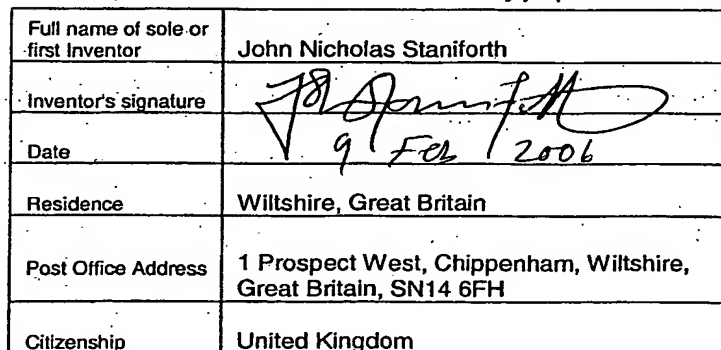 Full name of sole or
first Inventor
John Nicholas Staniforth
Inventor's signature
Date
9 Feb 2006
Residence
Wiltshire, Great Britain
Post Office Address
1 Prospect West, Chippenham, Wiltshire,
Great Britain, SN14 6FH
Citizenship
United Kingdom